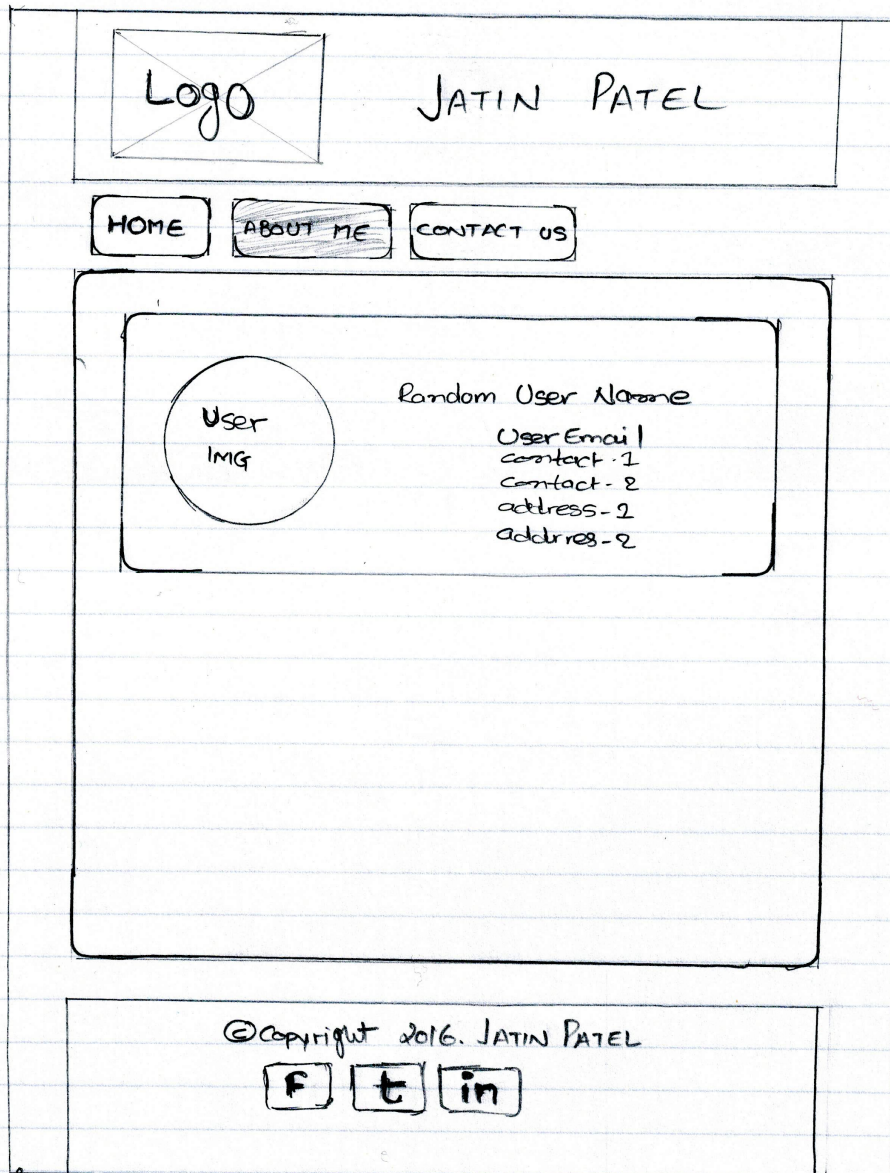 Logo
JATIN PATEL
HOME
ABOUT ME
CONTACT US
User
IMG
Random User Name
User Email
contact-1
contact-2
address-1
addrres-2
©Copyright 2016. JATIN PATEL
F t in